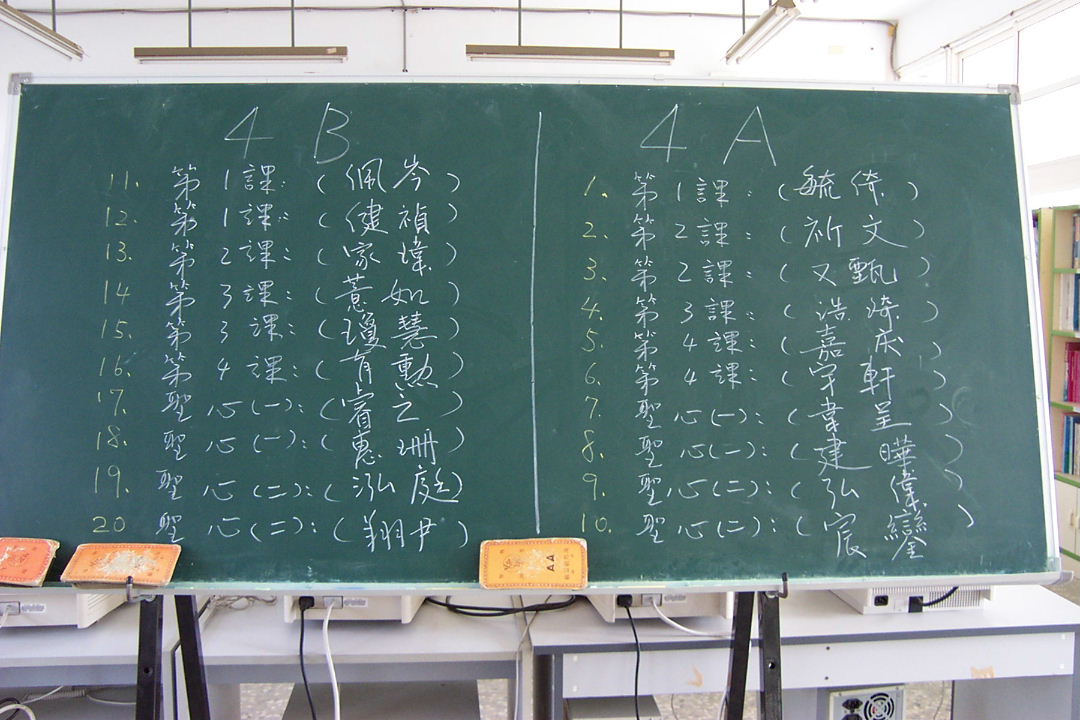 4 B
11. 第1課:(佩岑)
12. 第1課:(健禎)
13. 第2課:(家瑋)
14 第3課:(薏如)
15. 第3課:(瓊慧)
16. 第4課:(育勳)
17. 聖心(一):(睿之)
18. 聖心(一):(惠珊)
19. 聖心(二):(泓庭)
20 聖心(二):(翔尹)
4 A
1. 第1課:(毓傣)
2. 第2課:(祈文)
3. 第2課:(又甄)
4. 第3課:(浩渏)
5. 第4課:(嘉)
6. 第4課:(宇軒)
7. 聖心(一):(韋呈)
8. 聖心(一):(建曄)
9. 聖心(二):(弘偉)
10. 聖心(二):(宸)